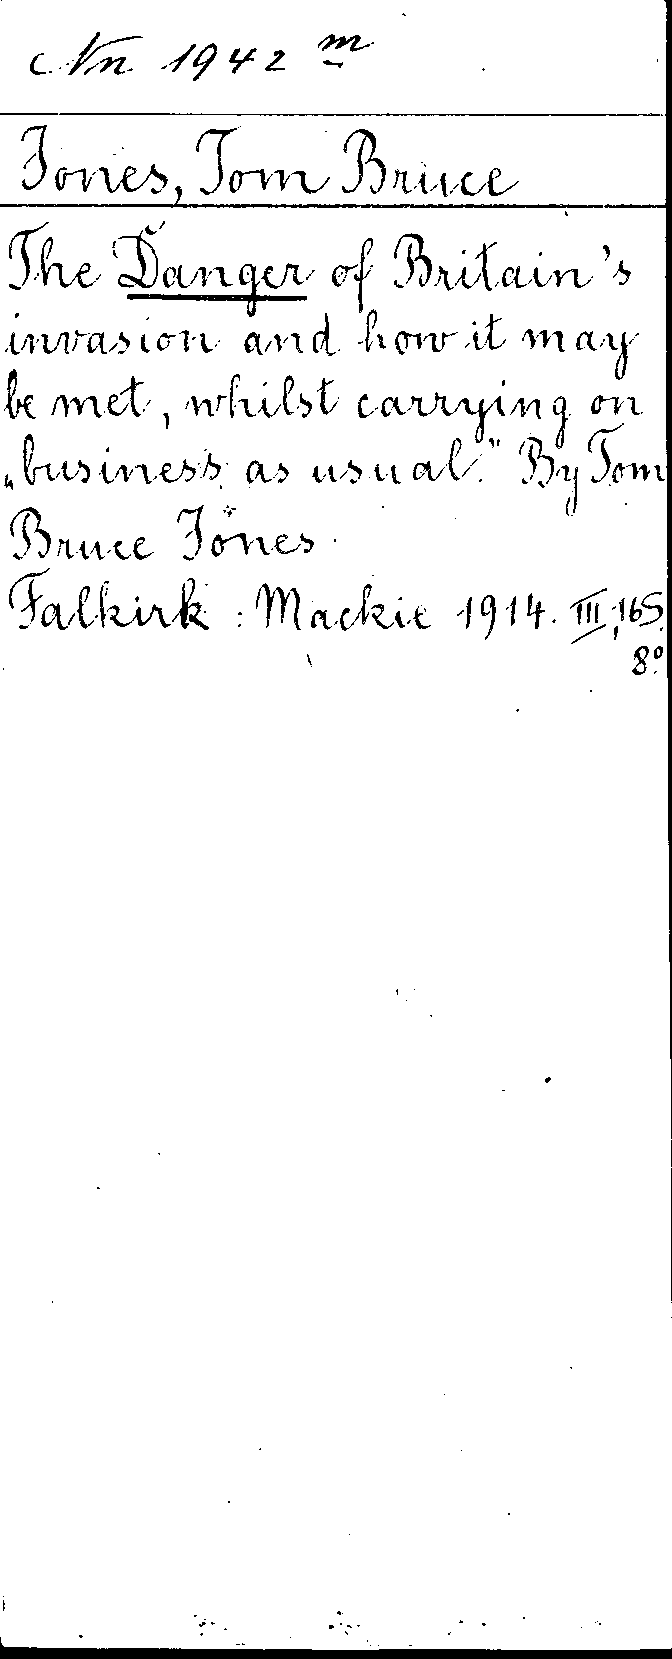 Nn 1942 m
Jones, Tom Bruce
The Danger of Britain's
invasion and how it may
be met, whilst carrying on
„business as usual." By Tom
Bruce Jones
Falkirk: Mackie 1914. III, 16 S.
8°